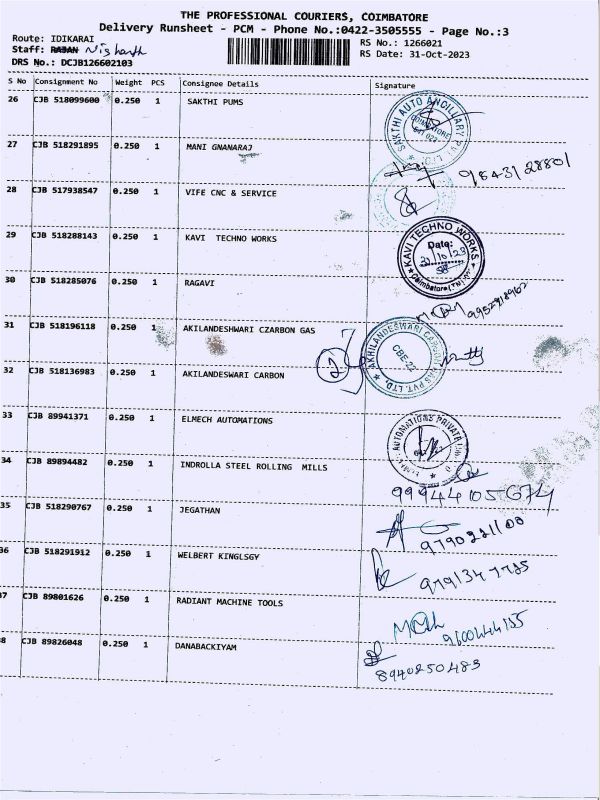 THE PROFESSIONAL COURIERS, COIMBATORE
Delivery Runsheet - PCM - Phone No.:0422-3505555 - Page No.:3
Route: IDIKARAI
RS No.: 1266021
Staff: RAJAN Nishanth
RS Date: 31-Oct-2023
DRS No.: DCJB126602103
S No Consignment No Weight PCS Consignee Details Signature
26 CJB 518099600 0.250 1 SAKTHI PUMS
SAKTHI AUTO ANCILLARY PVT LTD
COIMBATORE
641 022
27 CJB 518291895 0.250 1 MANI GNANARAJ
9843128801
28 CJB 517938547 0.250 1 VIFE CNC & SERVICE
29 CJB 518288143 0.250 1 KAVI TECHNO WORKS
KAVI TECHNO WORKS
Date:
31/10/23
Coimbatore(TN)
30 CJB 518285076 0.250 1 RAGAVI
9952818962
31 CJB 518196118 0.250 1 AKILANDESHWARI CZARBON GAS
AKHILANDESWARI CARBON GAS PVT. LTD.
CBE-22
2
32 CJB 518136983 0.250 1 AKILANDESWARI CARBON
33 CJB 89941371 0.250 1 ELMECH AUTOMATIONS
AUTOMATIONS PRIVATE
34 CJB 89894482 0.250 1 INDROLLA STEEL ROLLING MILLS
99944105674
35 CJB 518290767 0.250 1 JEGATHAN
9790221100
36 CJB 518291912 0.250 1 WELBERT KINGLSGY
9791347785
37 CJB 89801626 0.250 1 RADIANT MACHINE TOOLS
9600444155
38 CJB 89826048 0.250 1 DANABACKIYAM
8940250483